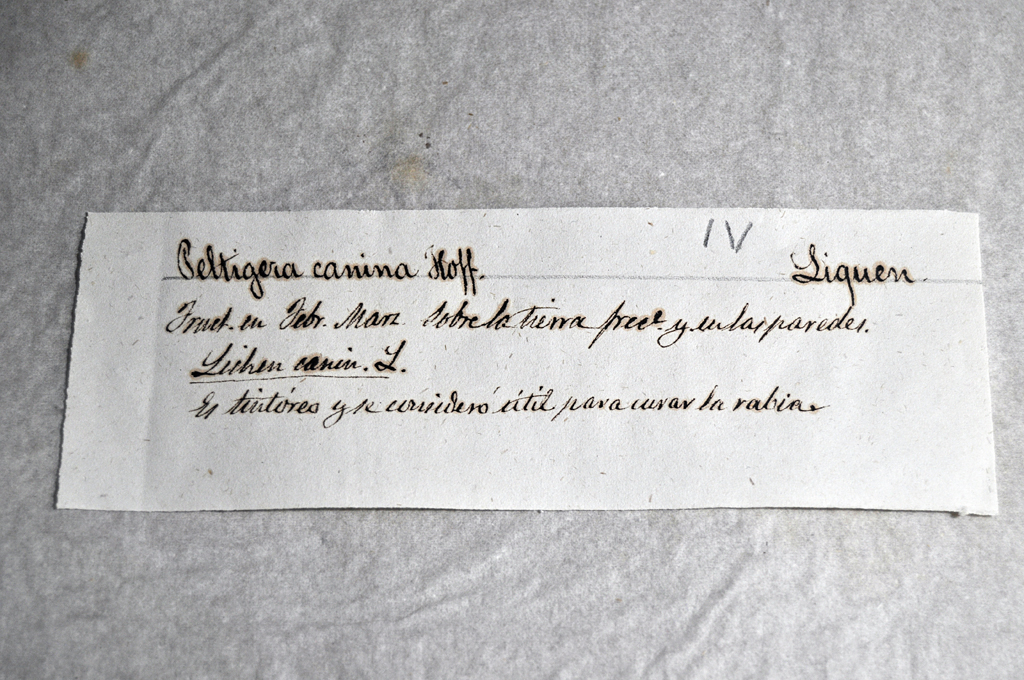 IV
Peltigera canina Hoff. Liquen
Fruct. en Febr. Marz Sobre la tierra frece y en las paredes.
Lichen canin. L.
Es tintóreo y se consideró útil para curar la rabia.